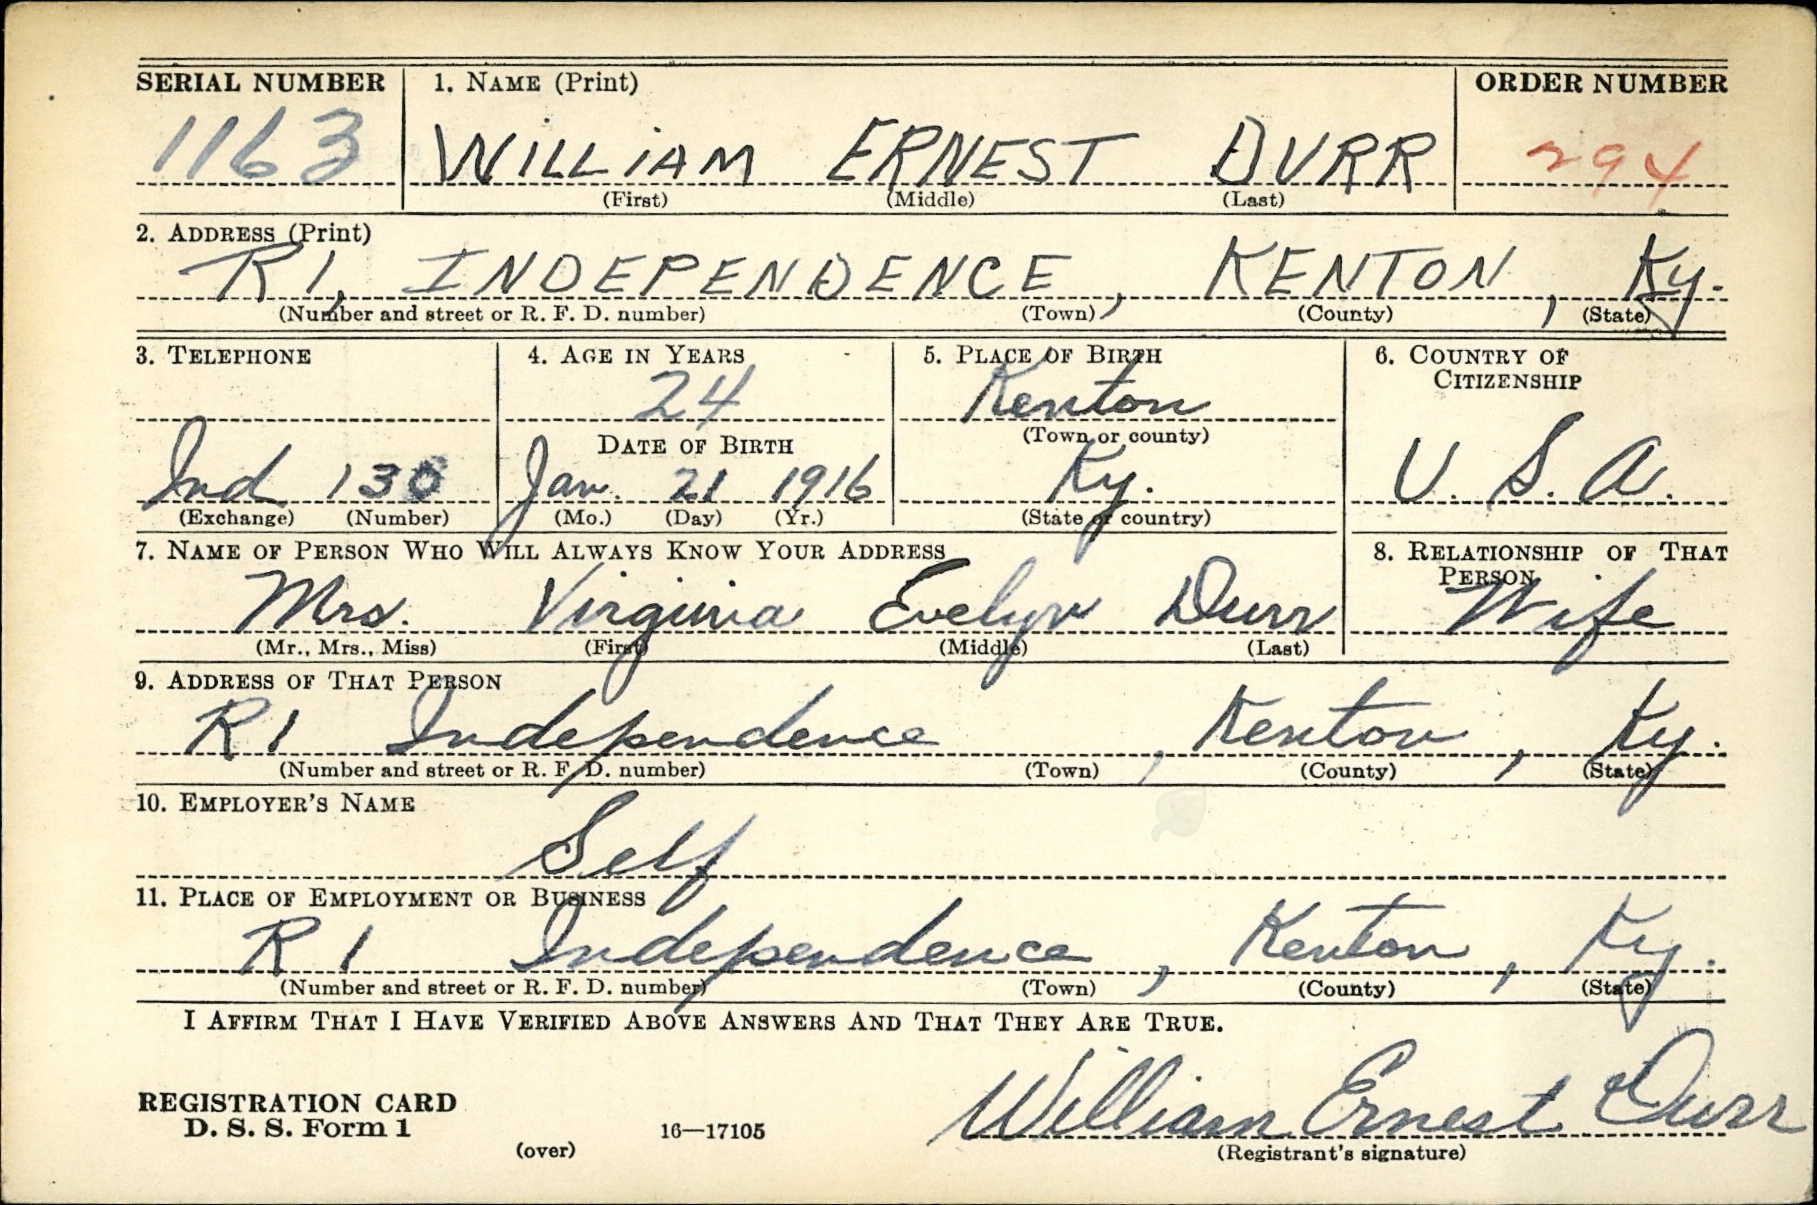 SERIAL NUMBER 1. NAME (Print) ORDER NUMBER
1163 WILLIAM ERNEST DURR 294
(First) (Middle) (Last)
2. ADDRESS (Print)
R1, INDEPENDENCE, KENTON, Ky.
(Number and street or R. F. D. number) (Town) (County) (State)
3. TELEPHONE 4. AGE IN YEARS 5. PLACE OF BIRTH 6. COUNTRY OF CITIZENSHIP
24 Kenton
DATE OF BIRTH (Town or county)
Ind Jan. 21 1916 Ky. U. S. A.
(Exchange) (Number) (Mo.) (Day) (Yr.) (State or country)
7. NAME OF PERSON WHO WILL ALWAYS KNOW YOUR ADDRESS 8. RELATIONSHIP OF THAT PERSON
Mrs. Virginia Evelyn Durr Wife
(Mr., Mrs., Miss) (First) (Middle) (Last)
9. ADDRESS OF THAT PERSON
R1 Independence, Kenton, Ky.
(Number and street or R. F. D. number) (Town) (County) (State)
10. EMPLOYER'S NAME
Self
11. PLACE OF EMPLOYMENT OR BUSINESS
R1 Independence, Kenton, Ky.
(Number and street or R. F. D. number) (Town) (County) (State)
I AFFIRM THAT I HAVE VERIFIED ABOVE ANSWERS AND THAT THEY ARE TRUE.
REGISTRATION CARD
D. S. S. Form 1 16—17105 William Ernest Durr
(over) (Registrant's signature)